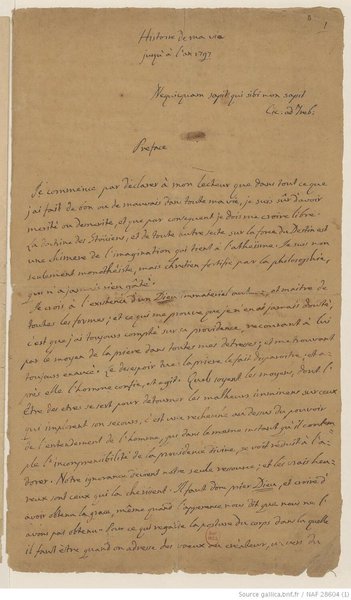 Histoire de ma vie
jusqu'à l'an 1797
Nequicquam sapit qui sibi non sapit
Cic. ad Treb.
Preface
Je commence par déclarer à mon lecteur que dans tout ce que
j'ai fait de bon ou de mauvais dans toute ma vie, je suis sûr d'avoir
merité ou demerité, et que par consequent je dois me croire libre.
La doctrine des Stoiciens, et de toute autre secte sur la force du Destin est
une chimere de l'imagination qui tient à l'atheisme. Je suis non
seulement monothéiste, mais chrétien fortifié par la philosophie,
qui n'a jamais rien gâté.
Je crois à l'existence d'un Dieu immateriel et maitre de
toutes les formes; et ce qui me prouve que je n'en ai jamais douté,
c'est que j'ai toujours compté sur sa providence, recourant à lui
par le moyen de la prière dans toutes mes detresses; et me trouvant
toujours exaucé. Le desespoir tue: la prière le fait disparoitre; et a-
près elle l'homme confie, et agit. Quels soyent les moyens, dont l'
Être des etres se sert pour détourner les malheurs imminens sur ceux
qui implorent son secours, c'est une recherche au dessus du pouvoir
de l'entendement de l'homme, que dans le meme instant qu'il contem-
ple l'incomprehensibilité de la providence divine, se voit réduit à l'a-
dorer. Notre ignorance devient notre seule ressource; et les vrais heu-
reux sont ceux qui la cherissent. Il faut donc prier Dieu, et croire d'
avoir obtenu la grace, même quand l'apparence nous dit que nous ne l'
avons pas obtenue. Pour ce qui regarde la posture du corps dans la quelle
il faut être quand on adresse des voeux au créateur, un vers du
Source gallica.bnf.fr / NAF 28604 (1)